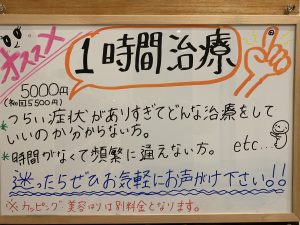 オススメ
1時間治療
5000円
(初回5500円)
*つらい症状がありすぎてどんな治療をして
いいのか分からない方。
*時間がなくて頻繁に通えない方。 etc...
迷ったらぜひお気軽にお声がけ下さい!!
※カッピング 美容はりは別料金となります。